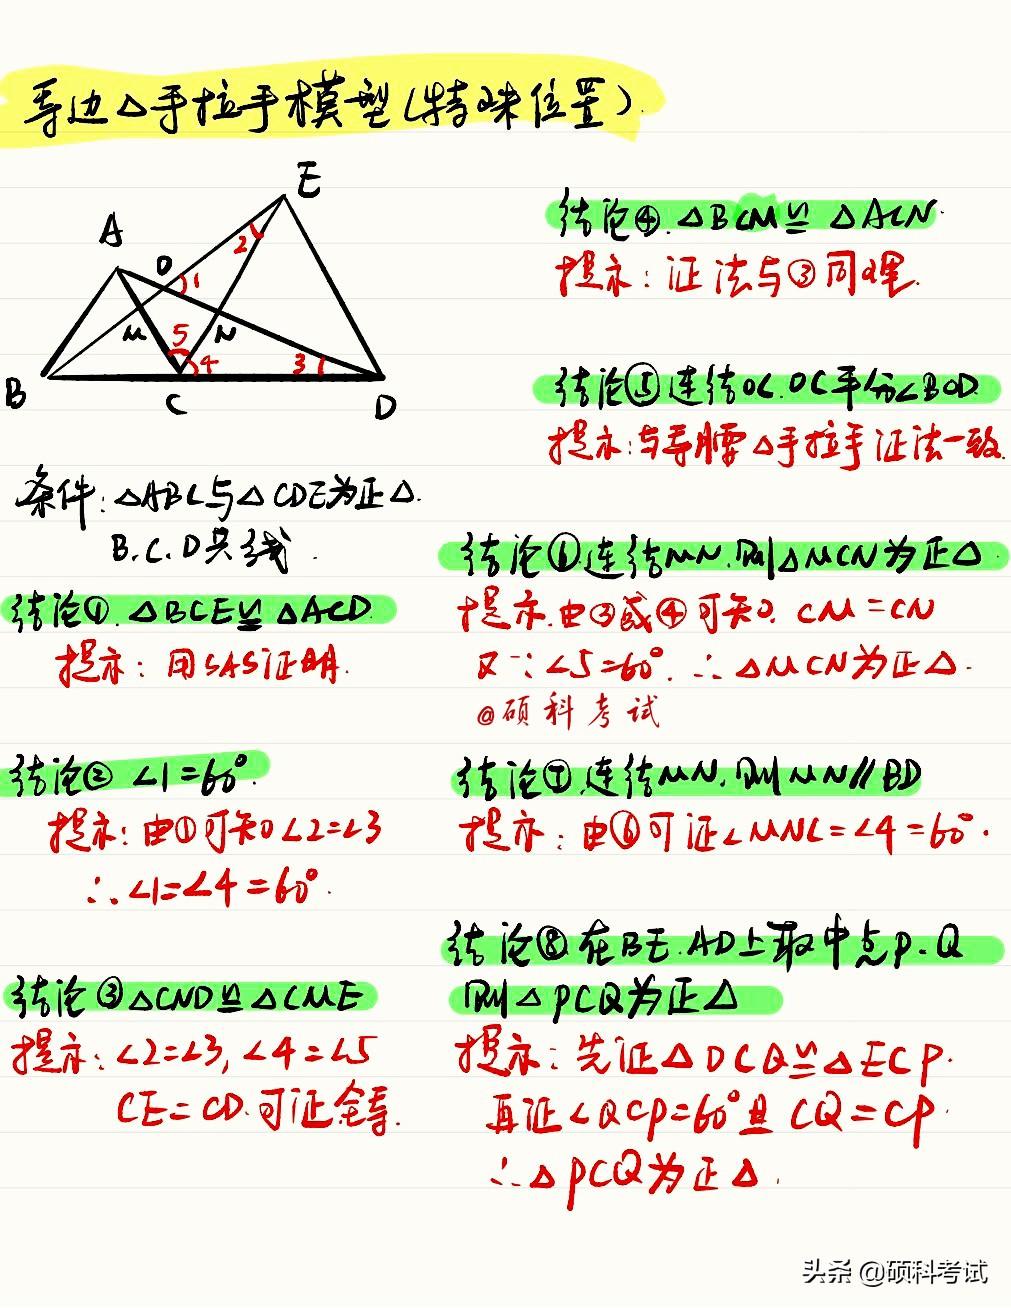 等边△手拉手模型(特殊位置)
E
A
O
2
1
M
5
N
4
3
B
C
D
条件:△ABC与△CDE为正△.
B.C.D共线.
结论①.△BCE≌△ACD.
提示:用SAS证明.
结论② ∠1=60°.
提示:由①可知∠2=∠3
∴∠1=∠4=60°.
结论③△CND≌△CME
提示:∠2=∠3,∠4=∠5
CE=CD.可证全等.
结论④.△BCM≌△ACN.
提示:证法与③同理.
结论⑤连结OC.OC平分∠BOD
提示:与等腰△手拉手证法一致.
结论⑥.连结MN.则△MCN为正△
提示.由③或④可知.CM=CN
又∵∠5=60°.∴△MCN为正△.
@硕科考试
结论⑦.连结MN.则MN∥BD
提示:由⑥可证∠MNC=∠4=60°.
结论⑧.在BE.AD上取中点P.Q
则△PCQ为正△
提示:先证△DCQ≌△ECP.
再证∠QCP=60°且CQ=CP.
∴△PCQ为正△.
头条 @硕科考试